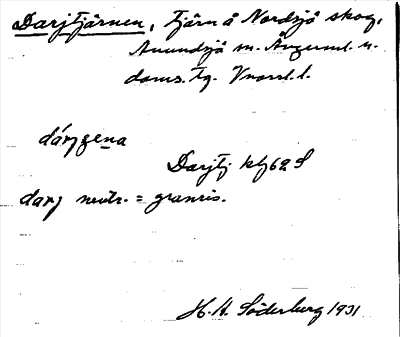 Darjtjärnen, Tjärn å Nordsjö skog,
Anundsjö sn. Ångerml. n.
doms. tg. Vnorrl. l.
dárjɡena
Darjtj. kbl 62 S
darj neutr. = granris.
H. H. Söderberg 1931